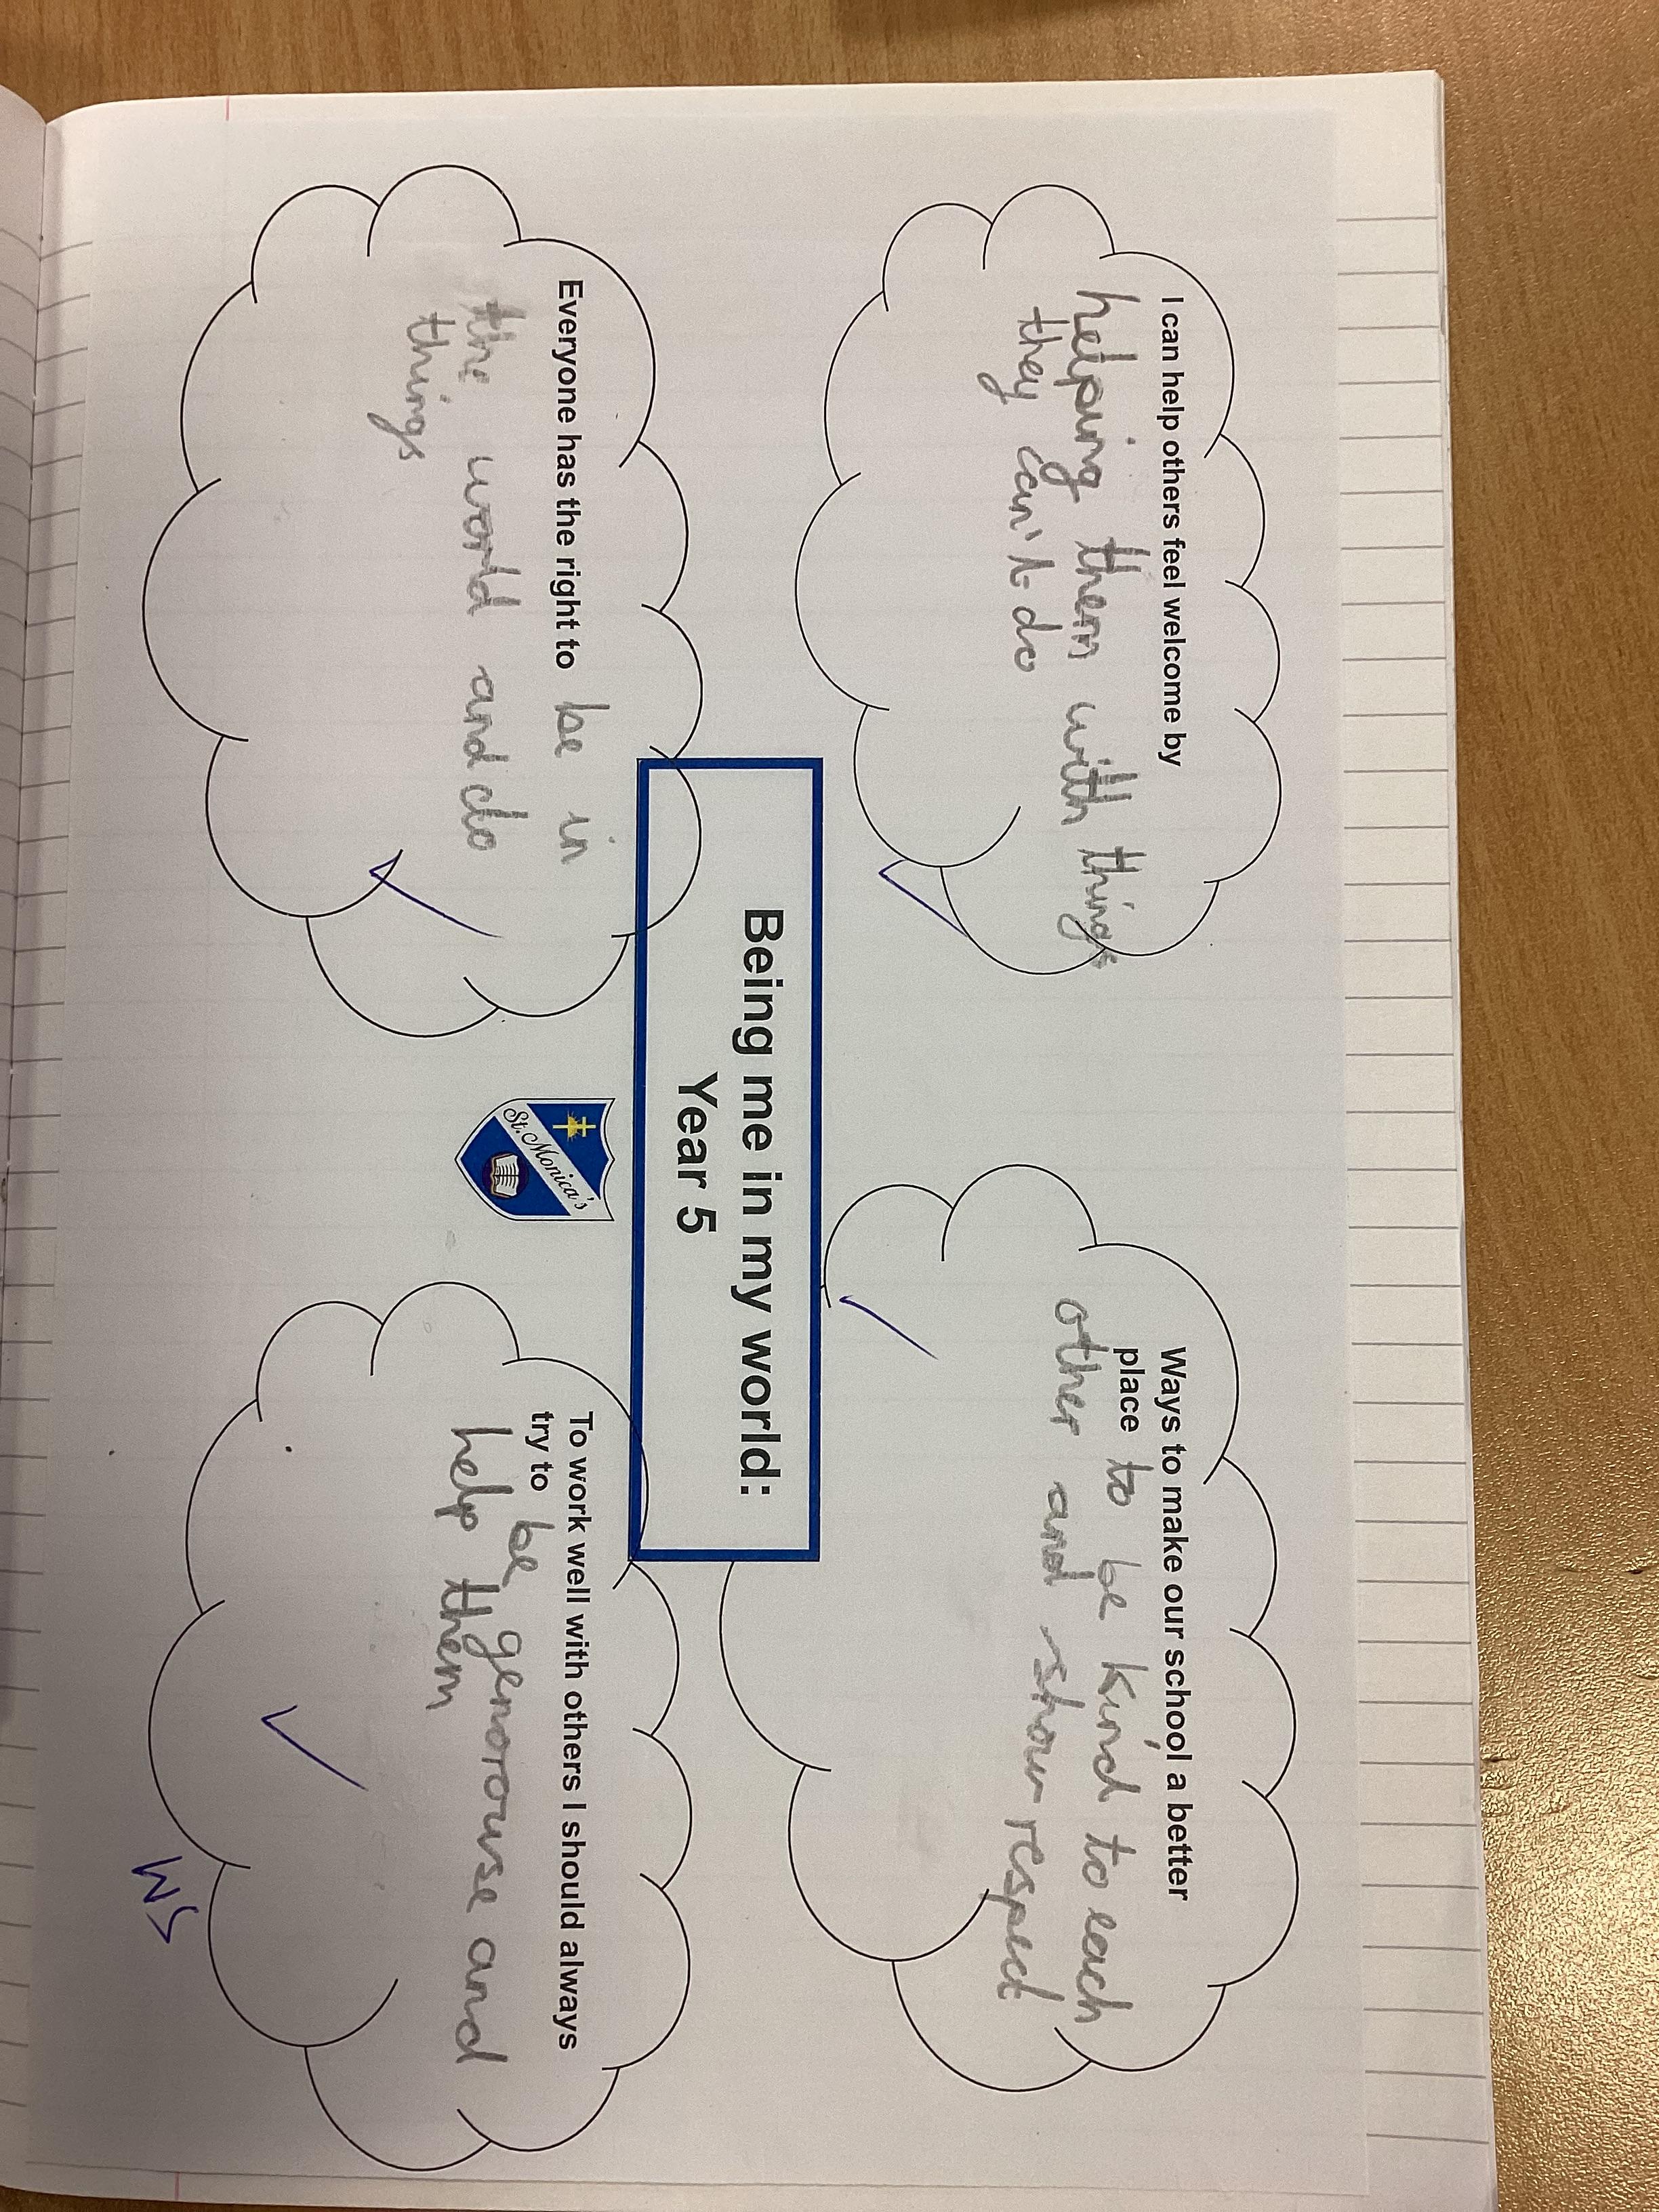 I can help others feel welcome by
helping them with things
they can't do
Ways to make our school a better
place to be kind to each
other and show respect
Being me in my world:
Year 5
St. Monica's
Everyone has the right to be in
the world and do
things
To work well with others I should always
try to be generouse and
help them
WS